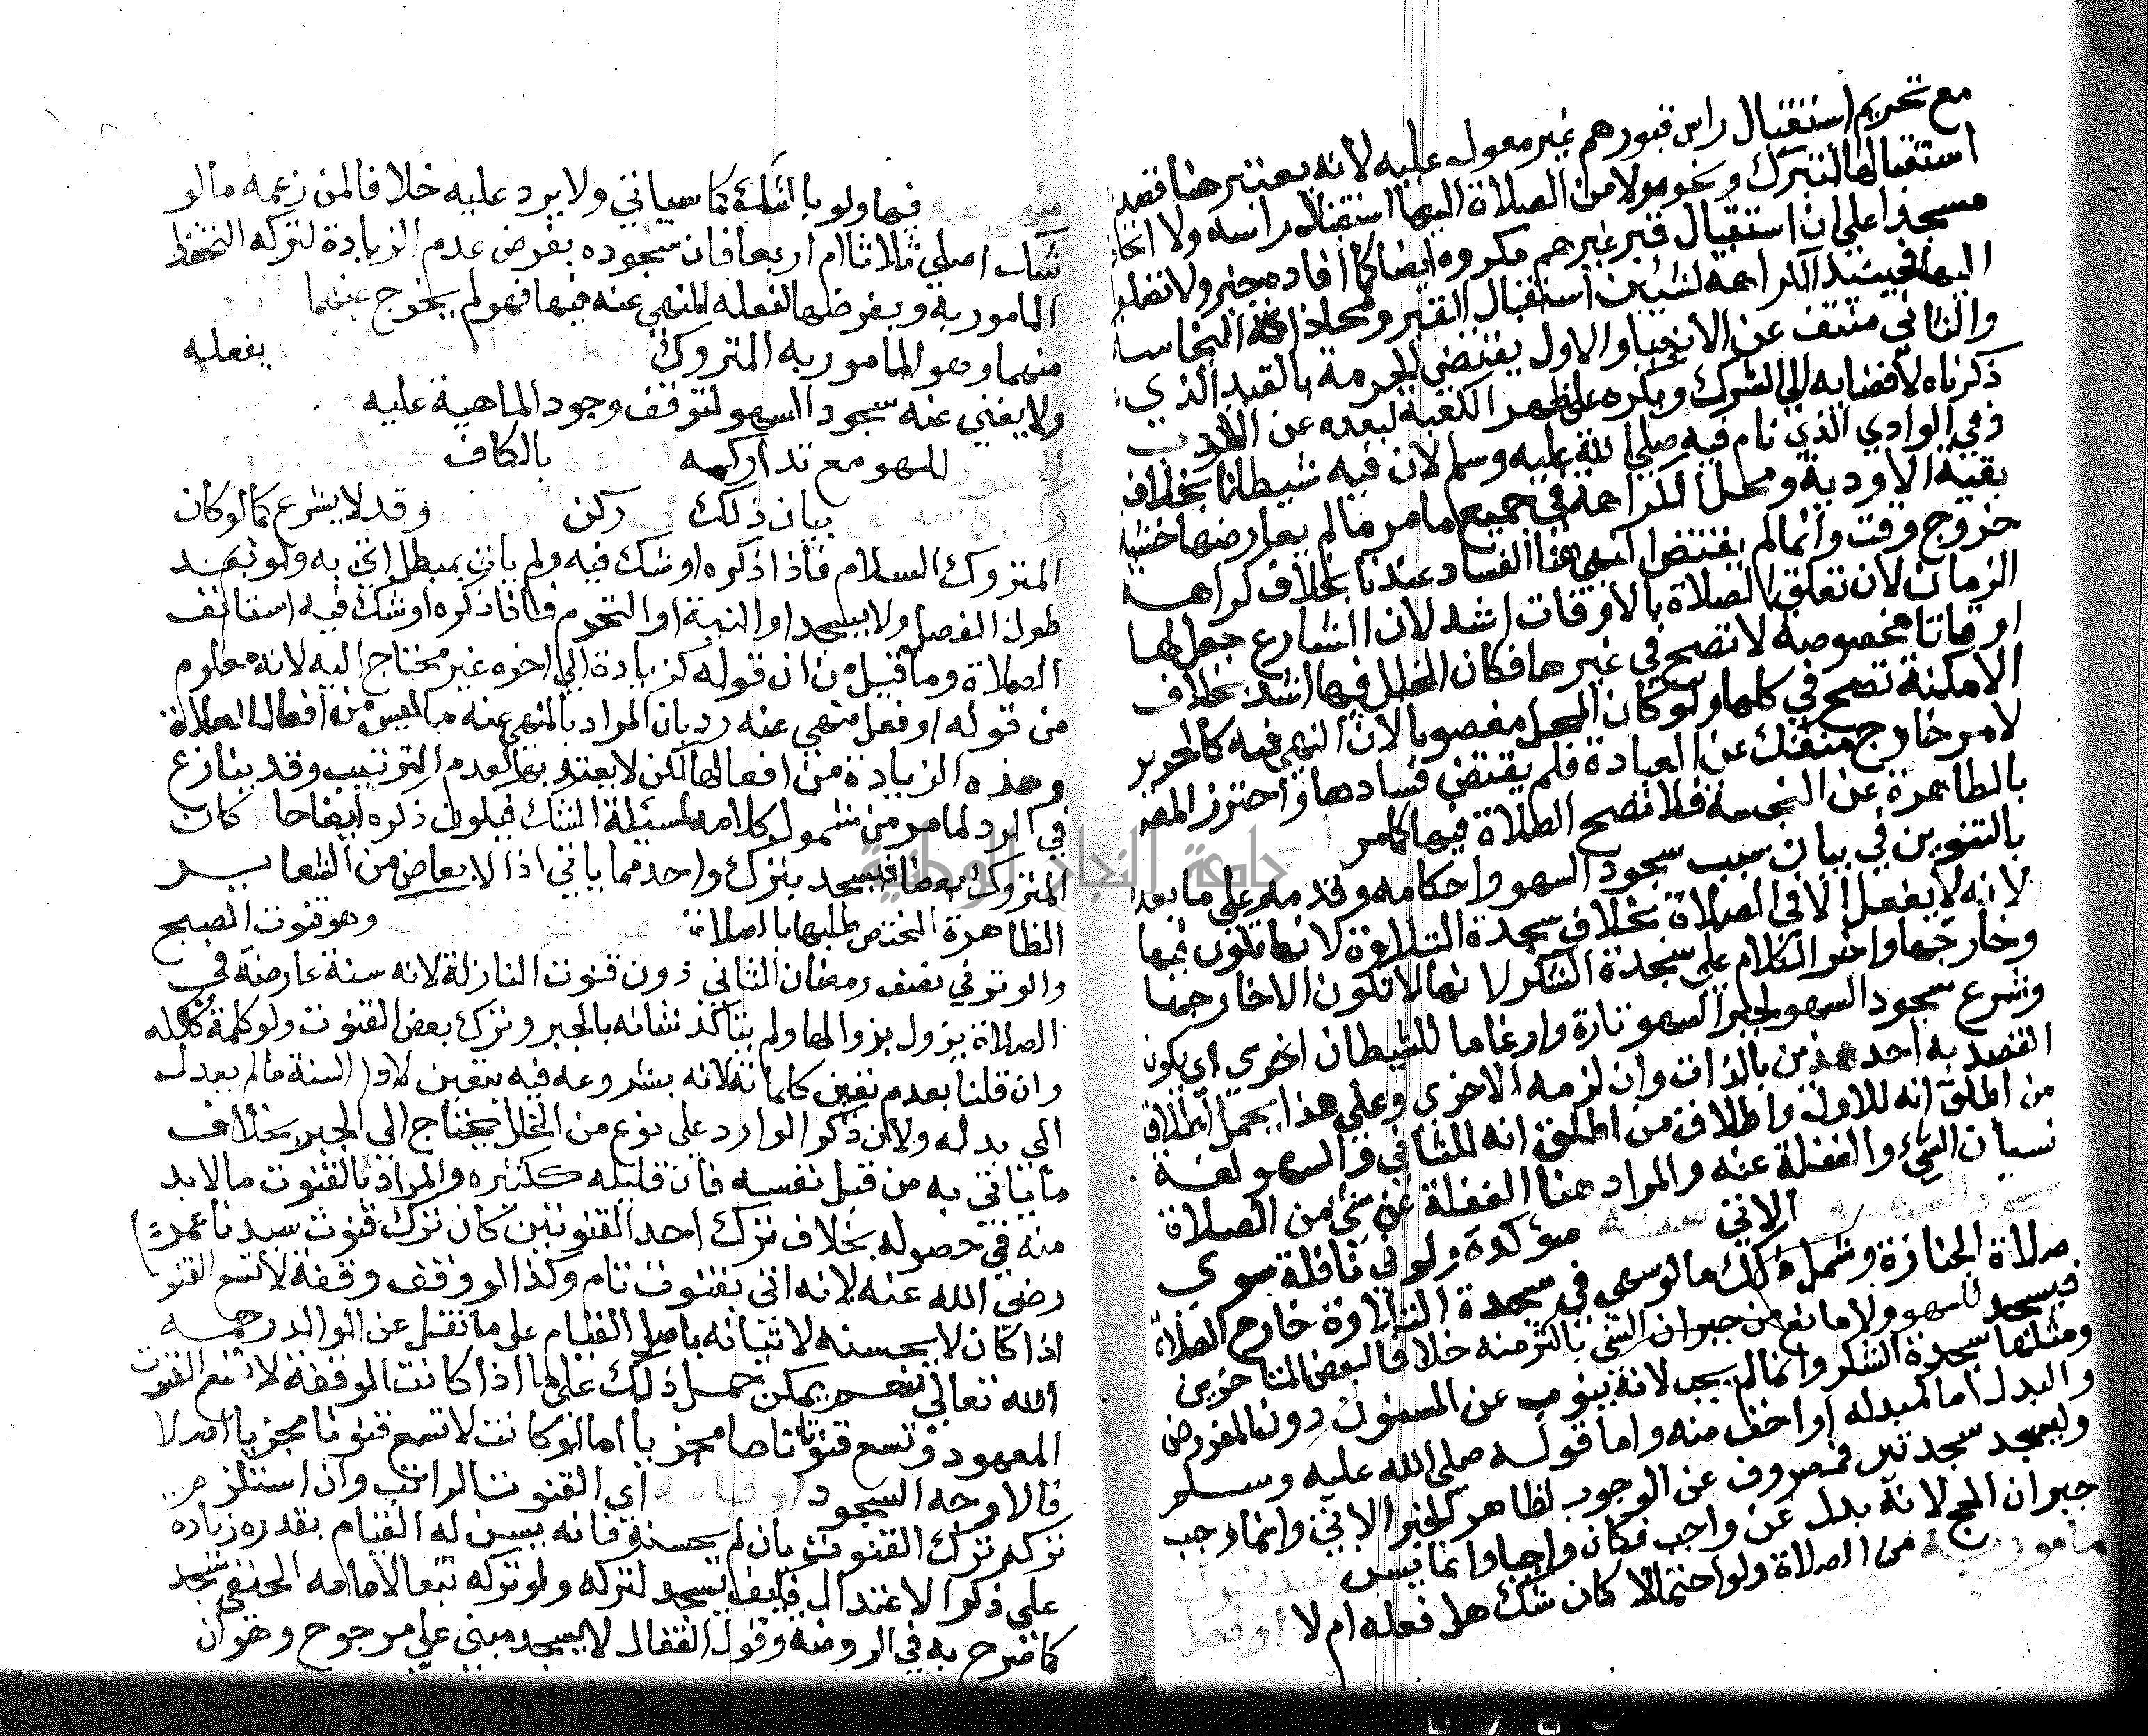 مع تحريم استقبال راس قبورهم غير معول عليه لانه يعتبر هنا قصد
استقبالها لتبرك ونحوه ولا من الصلاة اليها استقبال راسه ولا اتخاذ
مسجدا علي ان استقبال قبر غيرهم مكروه ايضا كما افاده خبر ولا تصلوا
اليها فحينئذ الكراهة لشيئين استقبال القبر ومحاذاة النجاسة
والثاني منتف عن الانبيا والاول يقتضي الحرمة بالقيد الذي
ذكرناه لافضايه الي الشرك ويكره علي ظهر الكعبة لبعده عن الادب
وفي الوادي الذي نام فيه صلي الله عليه وسلم لان فيه شيطانا بخلاف
بقية الاودية ومحل الكراهة في جميع ما مر ما لم يعارضها خشية
خروج وقت وانما لم يقتض النهي هنا الفساد عندنا بخلاف كراهة
الزمان لان تعلق الصلاة بالاوقات اشد لان الشارع جعل لها
اوقاتا مخصوصة لا تصح في غيرها فكان الخلل فيها اشد بخلاف
الامكنة تصح في كلها ولو كان المحل مغصوبا لان النهي فيه كالحرير
لامر خارج منفك عن العبادة فلم يقتض فسادها واحترز المص
بالطاهرة عن النجسة فلا تصح الصلاة فيها كما مر
بالتنوين في بيان سبب سجود السهو واحكامه وقدمه علي ما بعده
لانه لا يفعل الا في الصلاة بخلاف سجدة التلاوة لانها تكون فيها
وخارجها واخر الكلام علي سجدة الشكر لانها لا تكون الا خارجها
وشرع سجود السهو لجبر السهو تارة وارغاما للشيطان اخري اي يكون
القصد به احد هذين بالذات وان لزمه الاخري وعلي هذا يحمل اطلاق
من اطلق انه للاول واطلاق من اطلق انه للثاني والسهو لغة
نسيان الشي والغفلة عنه والمراد هنا الغفلة عن شي من الصلاة
الاتي سنة مؤكدة ولو في نافلة سوي
صلاة الجنازة وشمل ذلك ما لو سهي في سجدة التلاوة خارج الصلاة
فيسجد للسهو ولا مانع من جبران الشي باكثر منه خلافا لبعض المتاخرين
ومثلها سجدة الشكر وانما لم يجب لانه ينوب عن المسنون دون المفروض
والبدل اما كمبدله او اخف منه واما قوله صلي الله عليه وسلم
وليسجد سجدتين فمصروف عن الوجوب لظاهر الخبر الاتي وانما وجب
جبران الحج لانه بدل عن واجب فكان واجبا وانما يسن عند ترك
مامور به من الصلاة ولو احتمالا كان شك هل فعله ام لا او فعل
منهي عنه فيها ولو بالشك كما سياتي ولا يرد عليه خلافا لمن زعمه ما لو
شك اصلي ثلاثا ام اربعا فان سجوده بفرض عدم الزيادة لتركه التحفظ
المامور به وبفرضها لفعله المنهي عنه فيها فهو لم يخرج عنهما
منهما وهو المامور به المتروك بفعله
ولا يغني عنه سجود السهو لتوقف وجود الماهية عليه
للسهو مع تداركه بالكاف
بيان ذلك ركن وقد لا يشرع كما لو كان
المتروك السلام فاذا ذكره او شك فيه ولم يات بمبطل اتي به ولو بعد
طول الفصل ولا يسجد او النية او التحرم فاذا ذكره او شك فيه استانف
الصلاة وما قيل من ان قوله كزيادة الي اخره غير محتاج اليه لانه معلوم
من قوله او فعل منهي عنه رد بان المراد بالمنهي عنه ما ليس من افعال الصلاة
وهذه الزيادة من افعالها لكن لا يعتد بها لعدم الترتيب وقد ينازع
في الرد لما مر من شمول كلامه لمسئلة الشك فيكون ذكره ايضاحا كان
المتروك بعضا فيسجد بترك واحد مما ياتي اذ الابعاض من الشعاير
الظاهرة المختص طلبها بالصلاة وهو قنوت الصبح
والوتر في نصف رمضان الثاني دون قنوت النازلة لانه سنة عارضة في
الصلاة يزول بزوالها ولم يتاكد شانه بالجبر وترك بعض القنوت ولو كلمة ككله
وان قلنا بعدم تعين كلماته لانه بشروعه فيه يتعين لادا السنة ما لم يعدل
الي بدله ولان ذكر الوارد علي نوع من الخلل يحتاج الي الجبر بخلاف
ما ياتي به من قبل نفسه فان قليله ككثيره والمراد بالقنوت ما لا بد
منه في حصوله بخلاف ترك احد القنوتين كان ترك قنوت سيدنا عمر
رضي الله عنه لانه اتي بقنوت تام وكذا لو وقف وقفة لا تسع القنوت
اذا كان لا يحسنه لاتيانه باصل القيام علي ما نقل عن الوالد رحمه
الله تعالي نعم يمكن حمل ذلك علي ما اذا كانت الوقفة لا تسع القنوت
المعهود وتسع قنوتا ما مجزيا اما لو كانت لا تسع قنوتا مجزيا اصلا
فالاوجه السجود او قيامه اي القنوت الراتب وان استلزم
تركه ترك القنوت بان لم يحسنه فانه يسن له القيام بقدره زيادة
علي ذكر الاعتدال فليف يسجد لتركه ولو تركه تبعا لامامه الحنفي سجد
كما صرح به في الروضة وقول القفال لا يسجد مبني علي مرجوح وهو ان
جامعة النجاح الوطنية